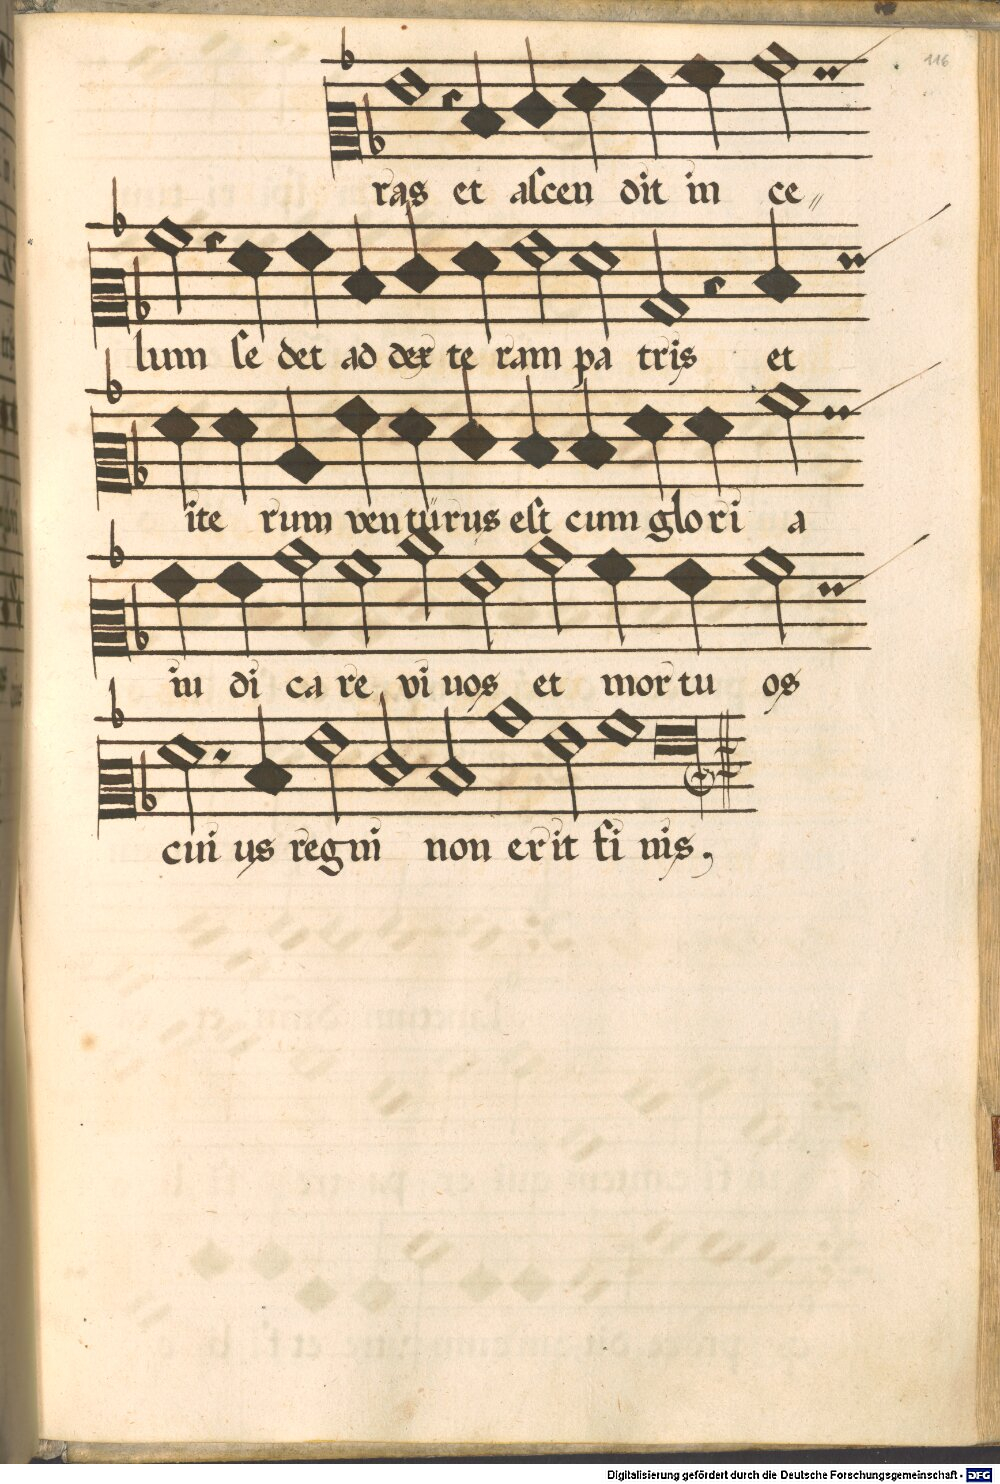 116
ras et ascen dit in ce
lum se det ad dex te ram pa tris et
ite rum ven turus est cum glo ri a
iu di ca re vi uos et mor tu os
cui us regni non erit fi nis,
Digitalisierung gefördert durch die Deutsche Forschungsgemeinschaft - DFG